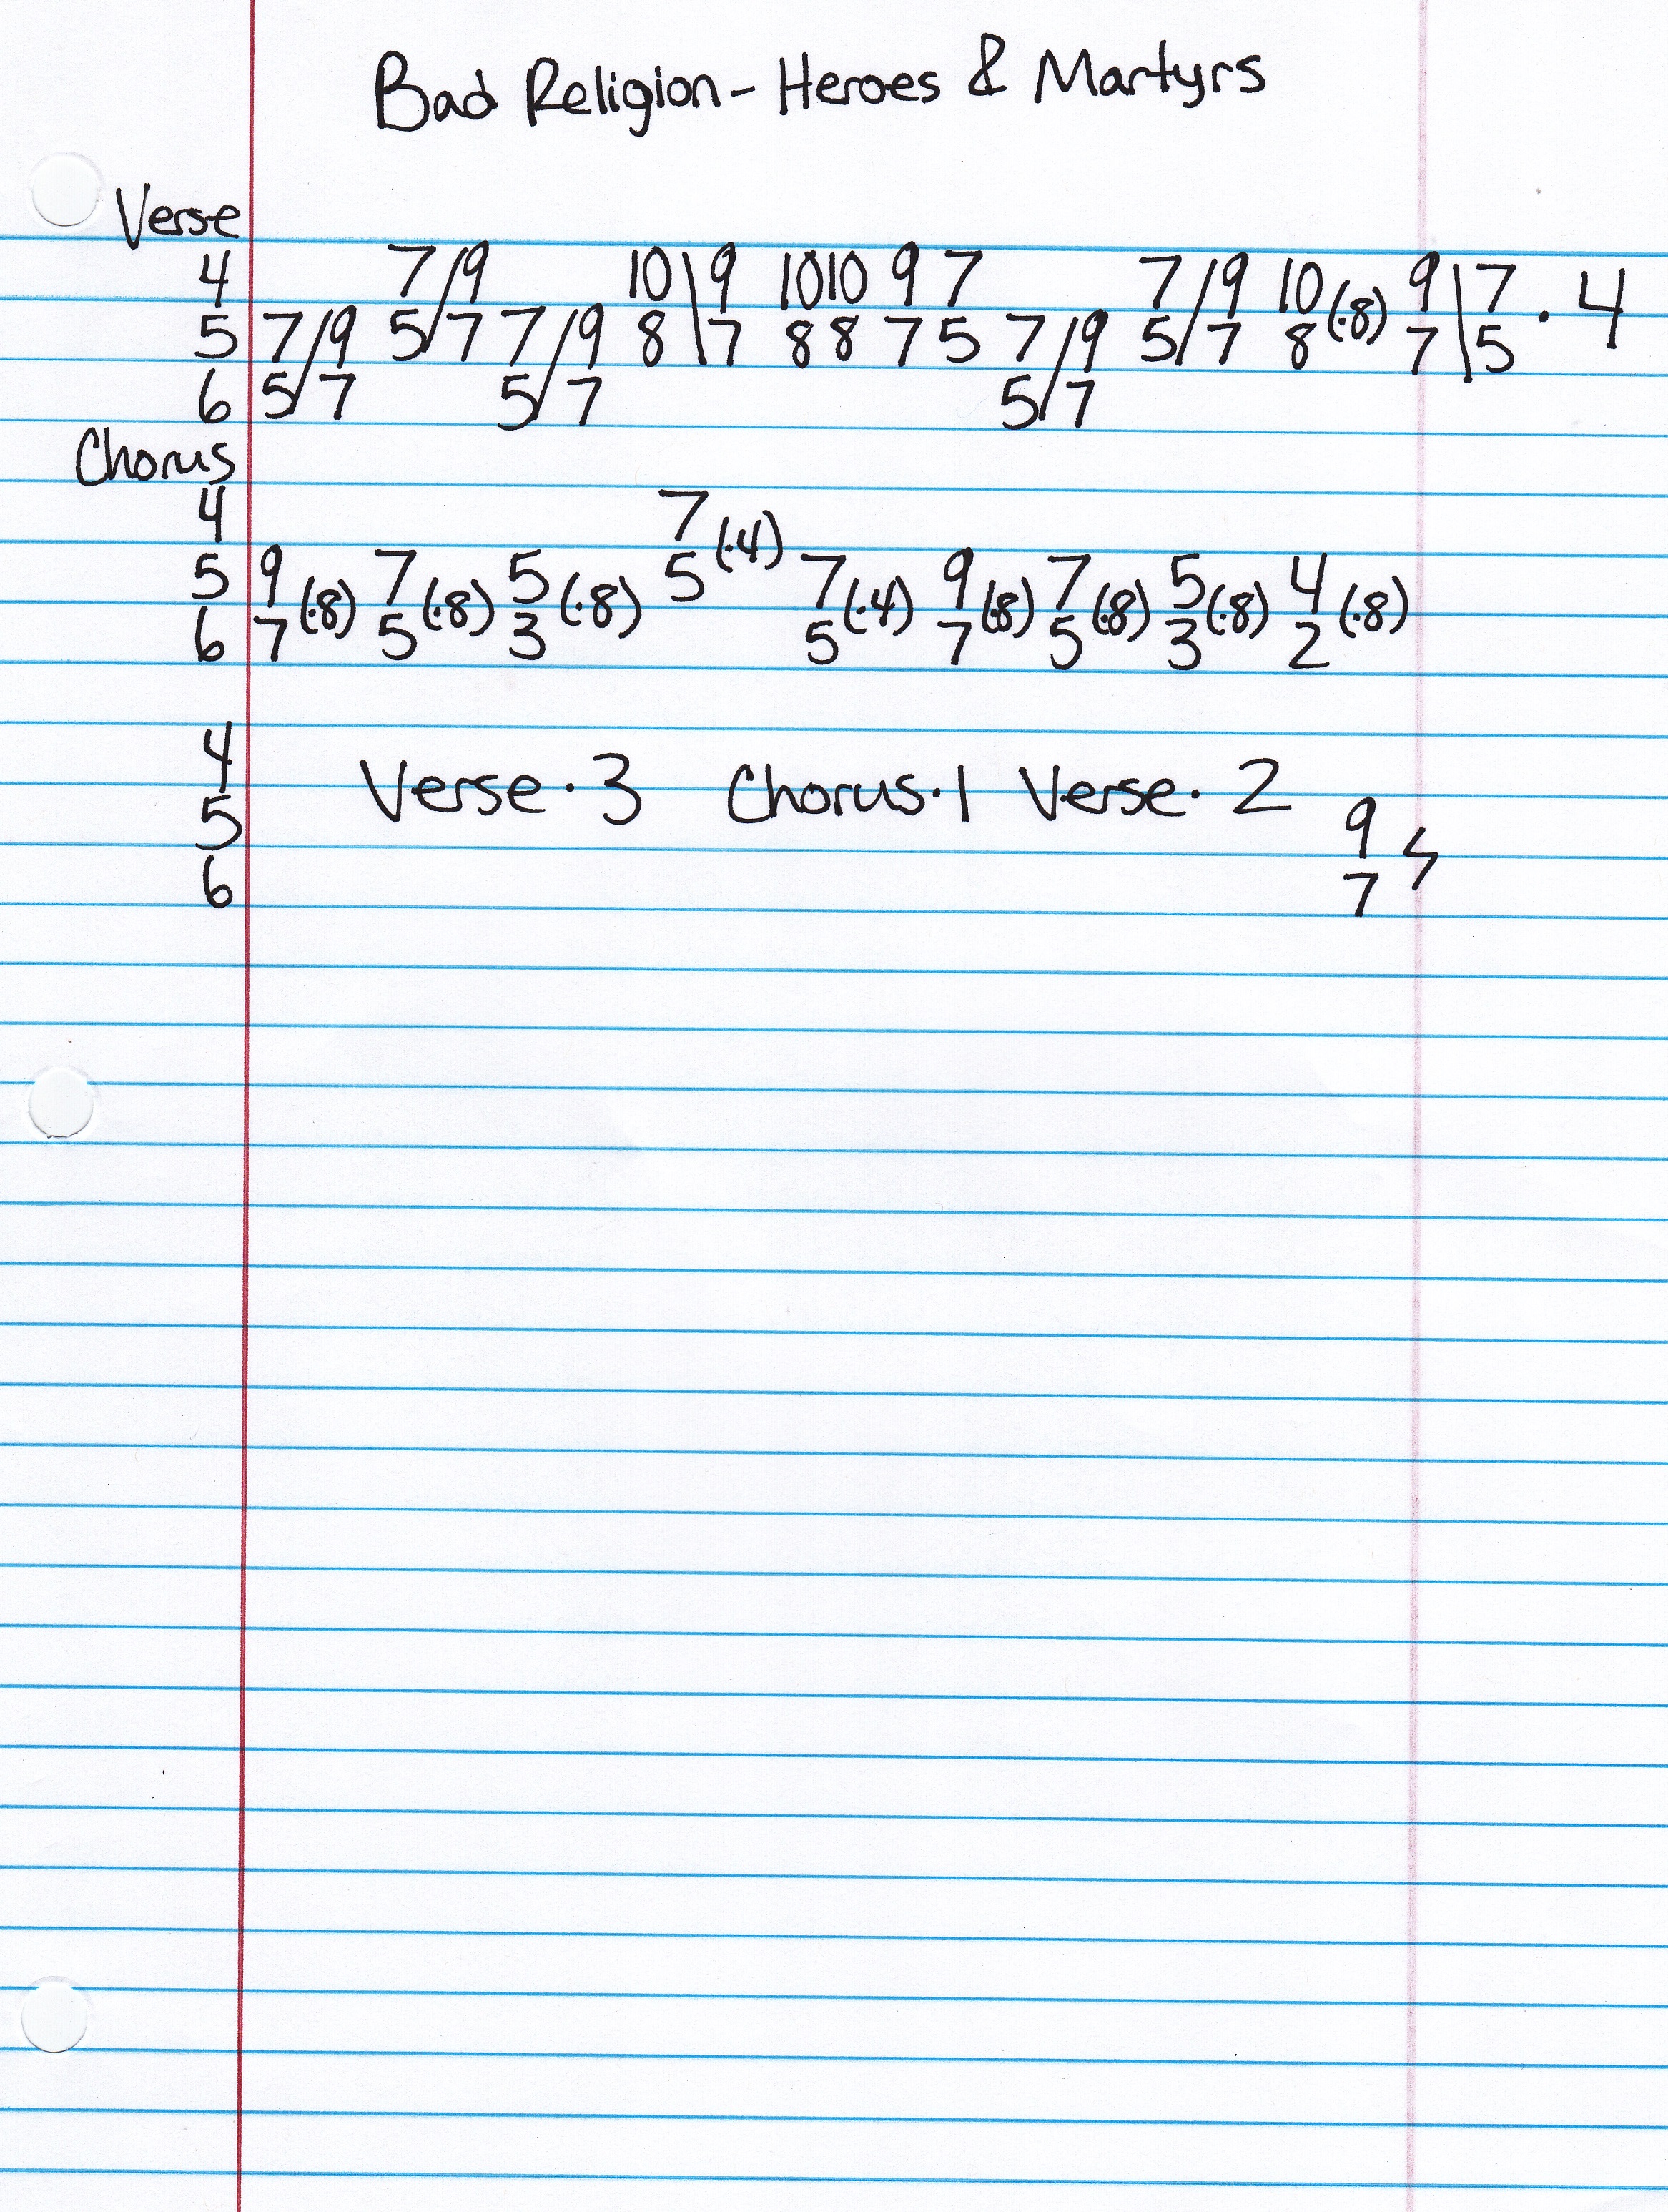 Bad Religion - Heroes & Martyrs
Verse
4 7/9 10\9 10 10 9 7 7/9 10 9\7
5 7/9 5/7 7/9 8\7 8 8 7 5 7/9 5/7 8 (·8) 7\5 · 4
6 5/7 5/7 5/7
Chorus
4 7 (·4)
5 9 7 5 5 7 9 7 5 4
6 7 (·8) 5 (·8) 3 (·8) 5 (·4) 7 (·8) 5 (·8) 3 (·8) 2 (·8)
4
5 Verse · 3 Chorus · 1 Verse · 2 9
6 7